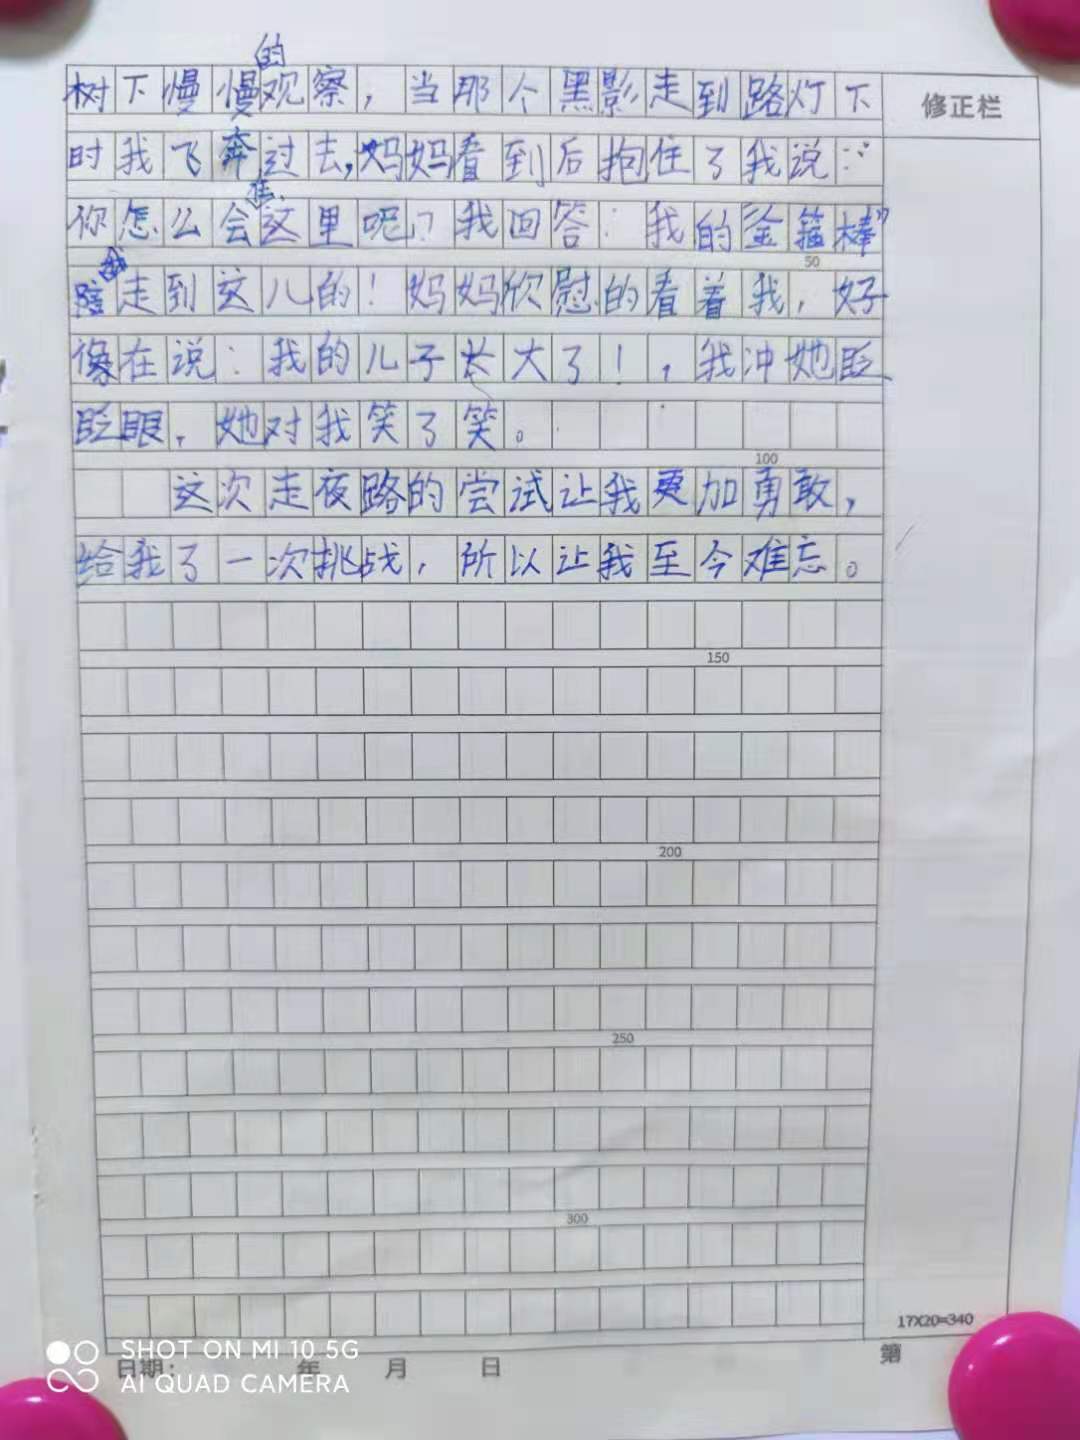 树下慢慢的观察，当那个黑影走到路灯下
修正栏
时我飞奔过去，妈妈看到后抱住了我说：“
你怎么会在这里呢？我回答：我的金箍棒”
50
陪我走到这儿的！妈妈欣慰的看着我，好
像在说：我的儿子长大了！，我冲她眨
眨眼，她对我笑了笑。
100
这次走夜路的尝试让我更加勇敢，
给我了一次挑战，所以让我至今难忘。
150
200
250
300
17X20=340
日期： 年 月 日
第
SHOT ON MI 10 5G
AI QUAD CAMERA